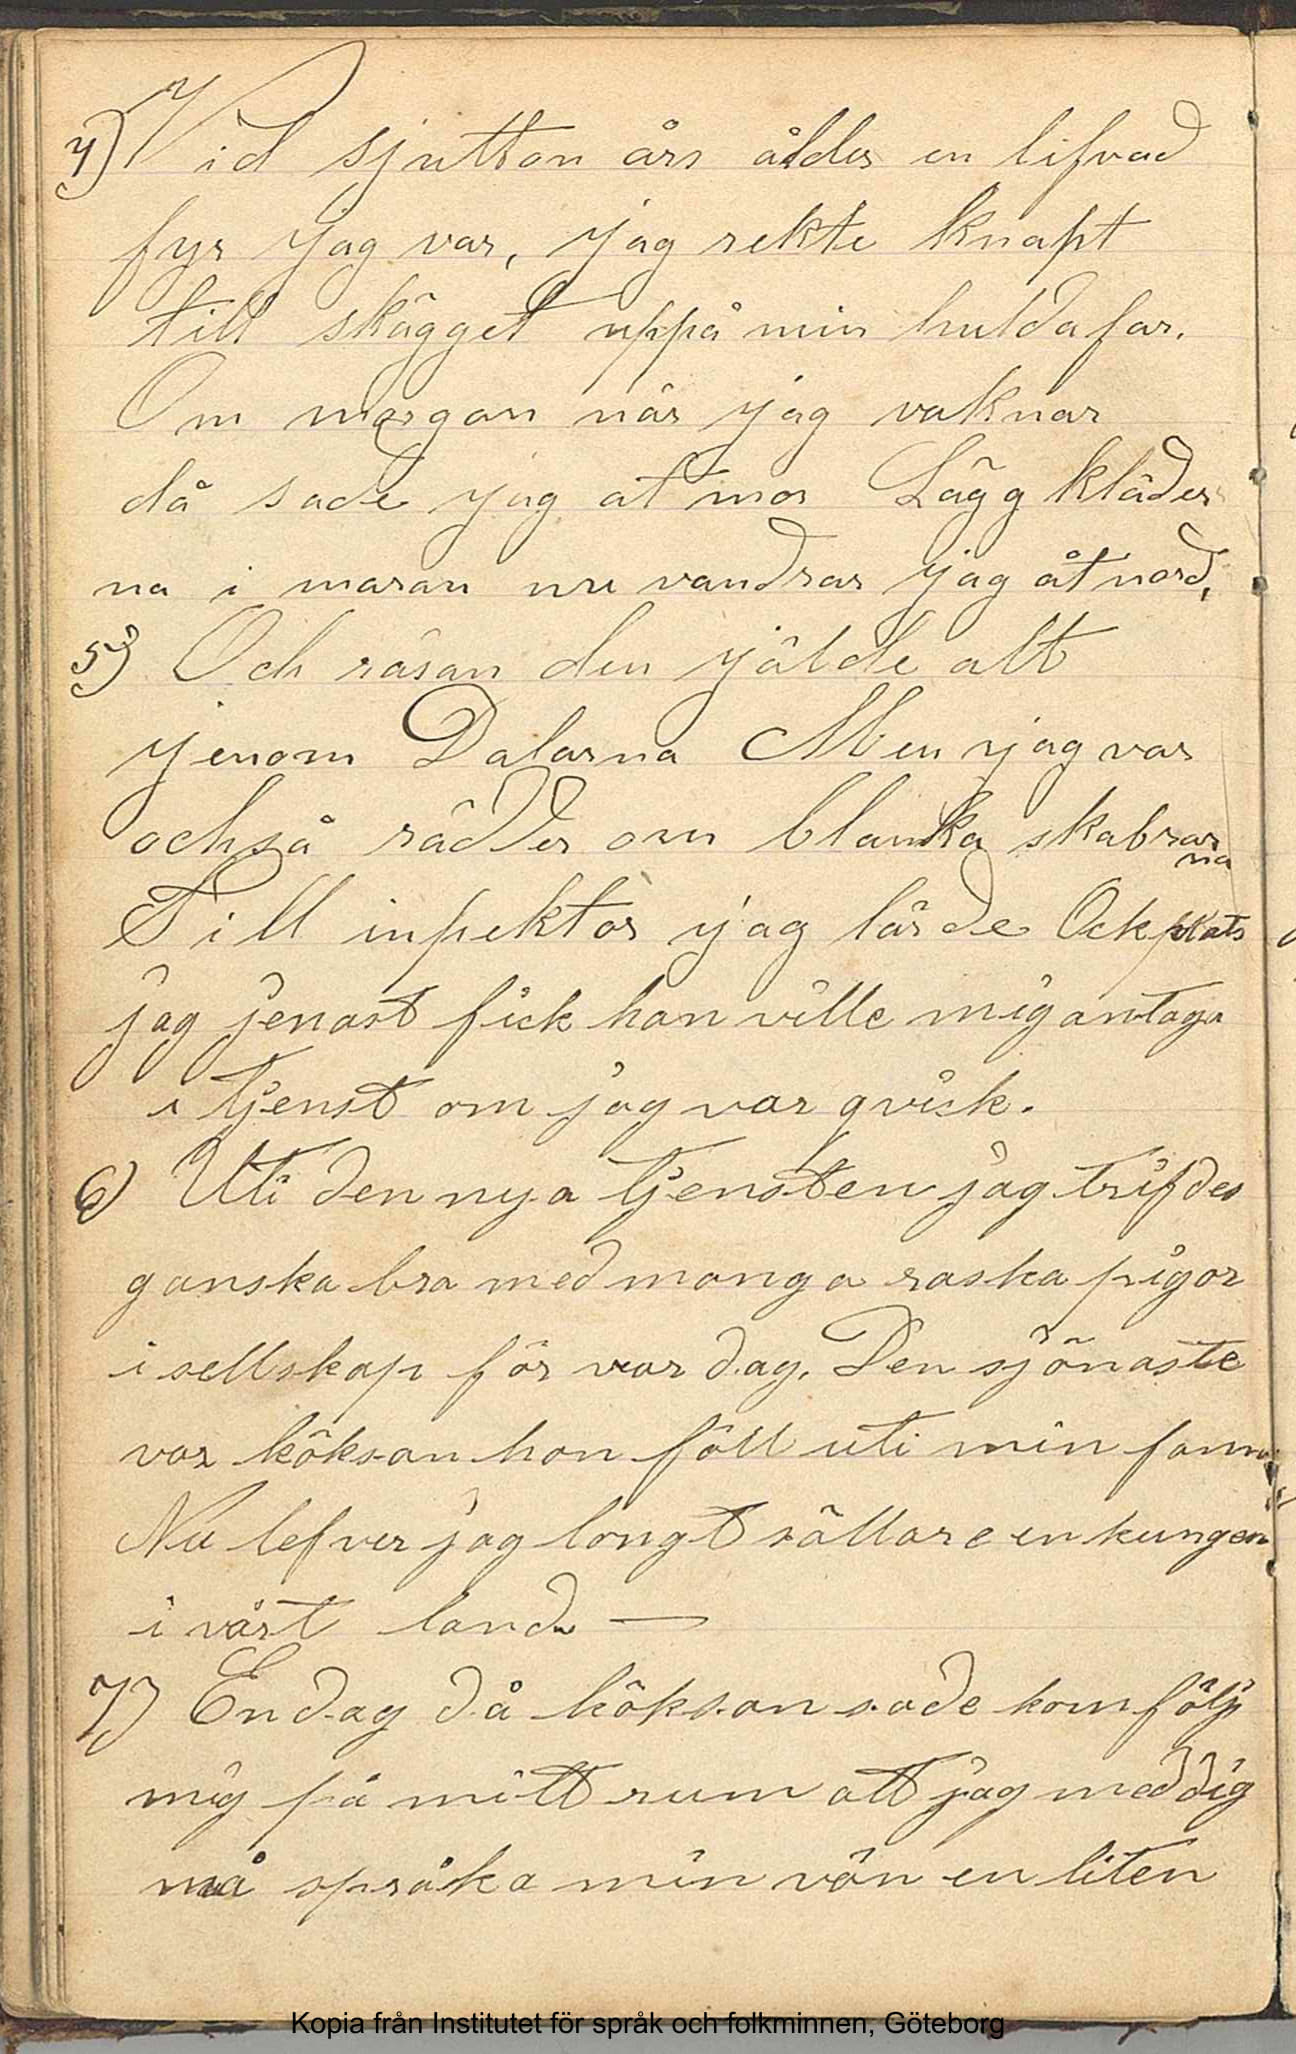 4) Vid sjutton års ålder en lifvad
fyr jag var, jag rekte knapt
till skägget uppå min hulda far.
Om morgon när jag vaknar
då sade jag at mor Lägg kläder
na i maran nu vandrar jag åt nord,
5) Och räsan den jälde alt
jenom Dalarna Men jag var
också rädder om blanka skabrar
na
Till inpektor jag lärde Ock plats
jag jenast fick han ville mig antaga
i tjenst om jag var qvick.
6) Uti den nya tjensten jag trifdes
ganska bra med manga raska pigor
i sellskap för var dag. Den sjönaste
var köksan hon föll uti min famn
Nu lefver jag longt sällare en kungen
i vårt land —
7) En dag då köksan sade kom följ
mig på mitt rum att jag med dig
må språka min vän en liten
Kopia från Institutet för språk och folkminnen, Göteborg